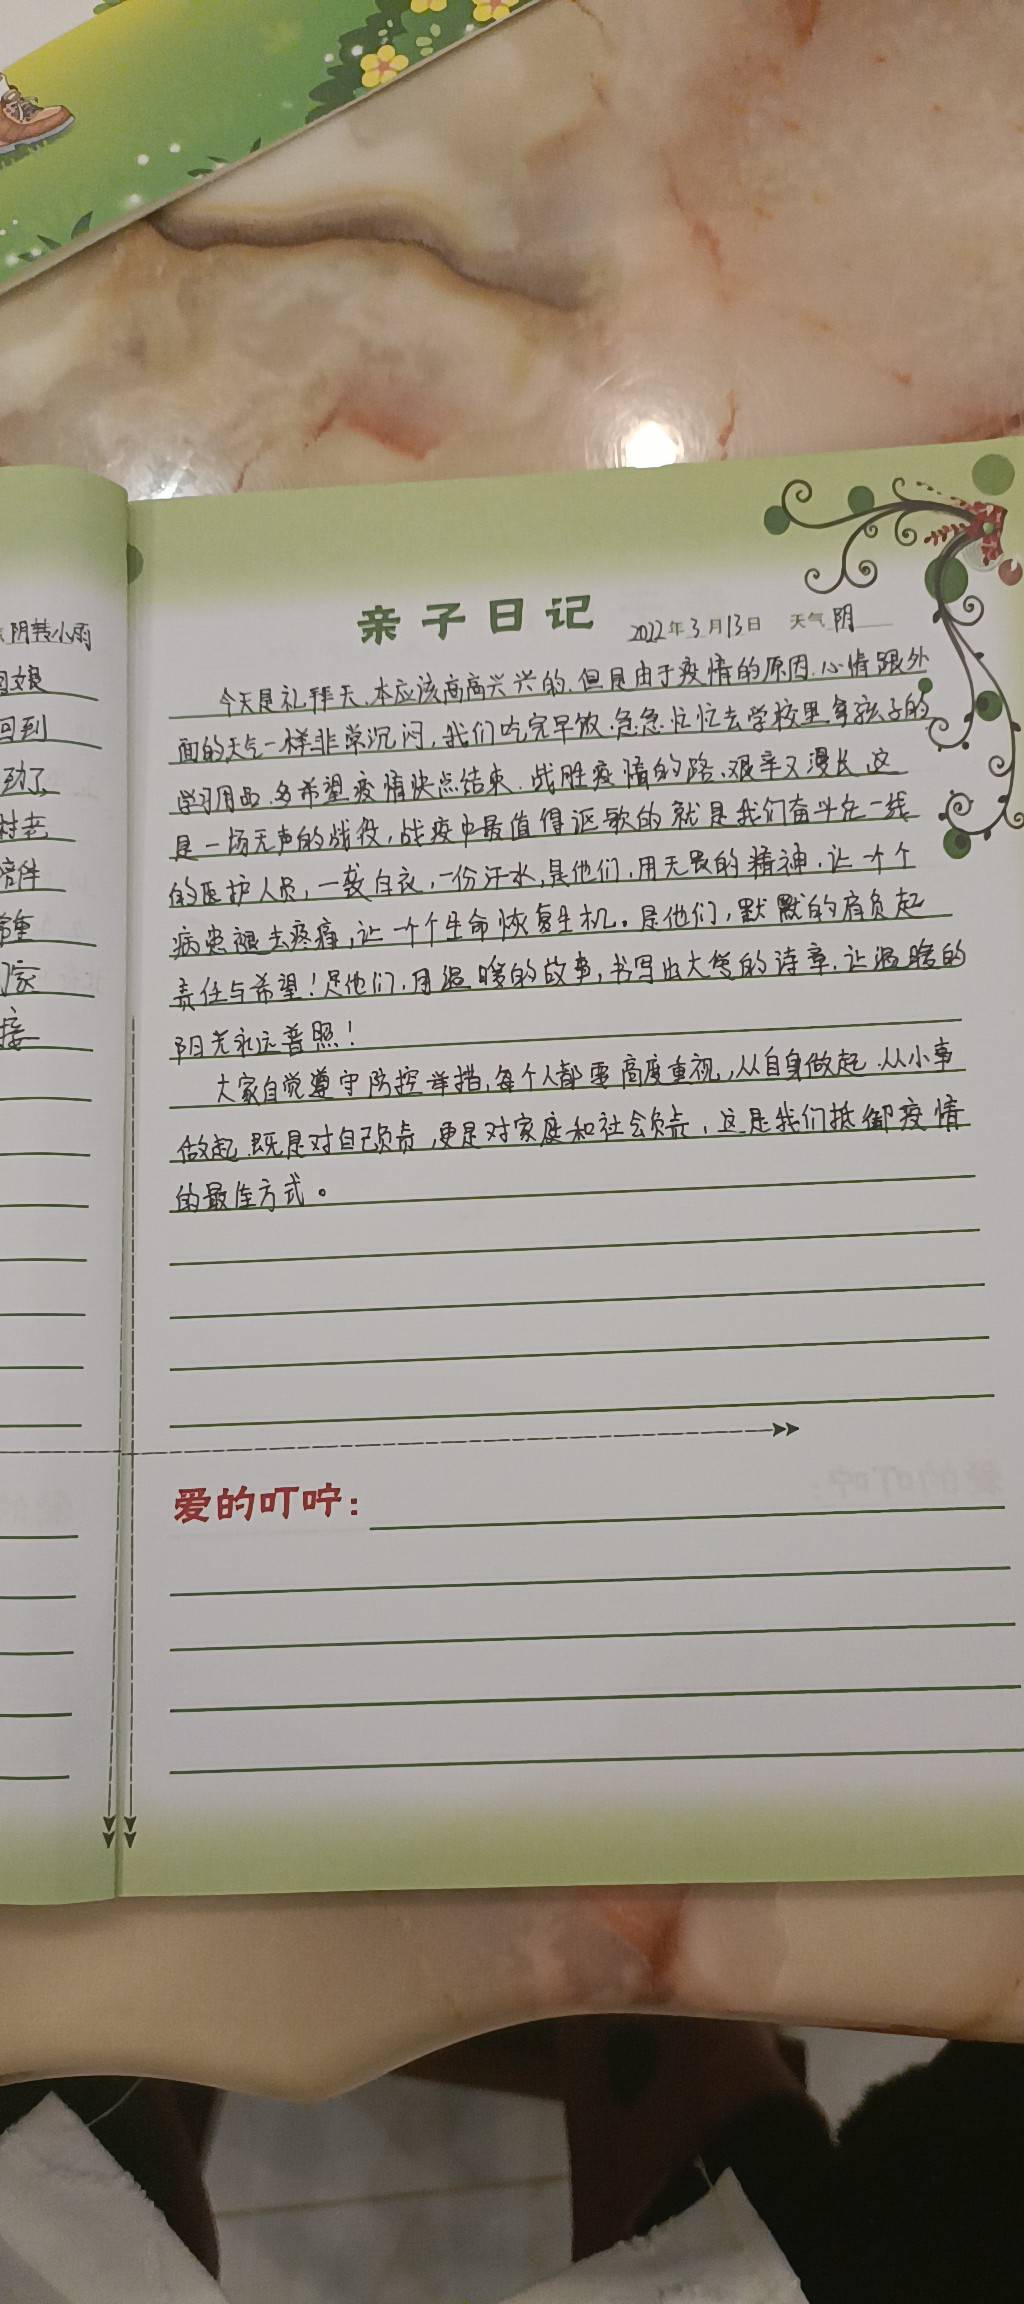 阴转小雨
回到
陪伴
接
亲子日记 2022年3月13日 天气 阴
今天是礼拜天、本应该高高兴兴的.但是由于疫情的原因.心情跟外
面的天气一样非常沉闷,我们吃完早饭.急急忙忙去学校里拿孩子的
学习用品.多希望疫情快点结束.战胜疫情的路、艰辛又漫长.这
是一场无声的战役,战疫中最值得讴歌的就是我们奋斗在一线
的医护人员,一袭白衣,一份汗水,是他们,用无畏的精神.让一个个
病患褪去疼痛,让一个个生命恢复生机。是他们,默默的肩负起
责任与希望!是他们.用温暖的故事,书写出大爱的诗章.让温暖的
阳光永远普照!
大家自觉遵守防控举措,每个人都要高度重视,从自身做起.从小事
做起.既是对自己负责,更是对家庭和社会负责,这是我们抵御疫情
的最佳方式。
爱的叮咛: